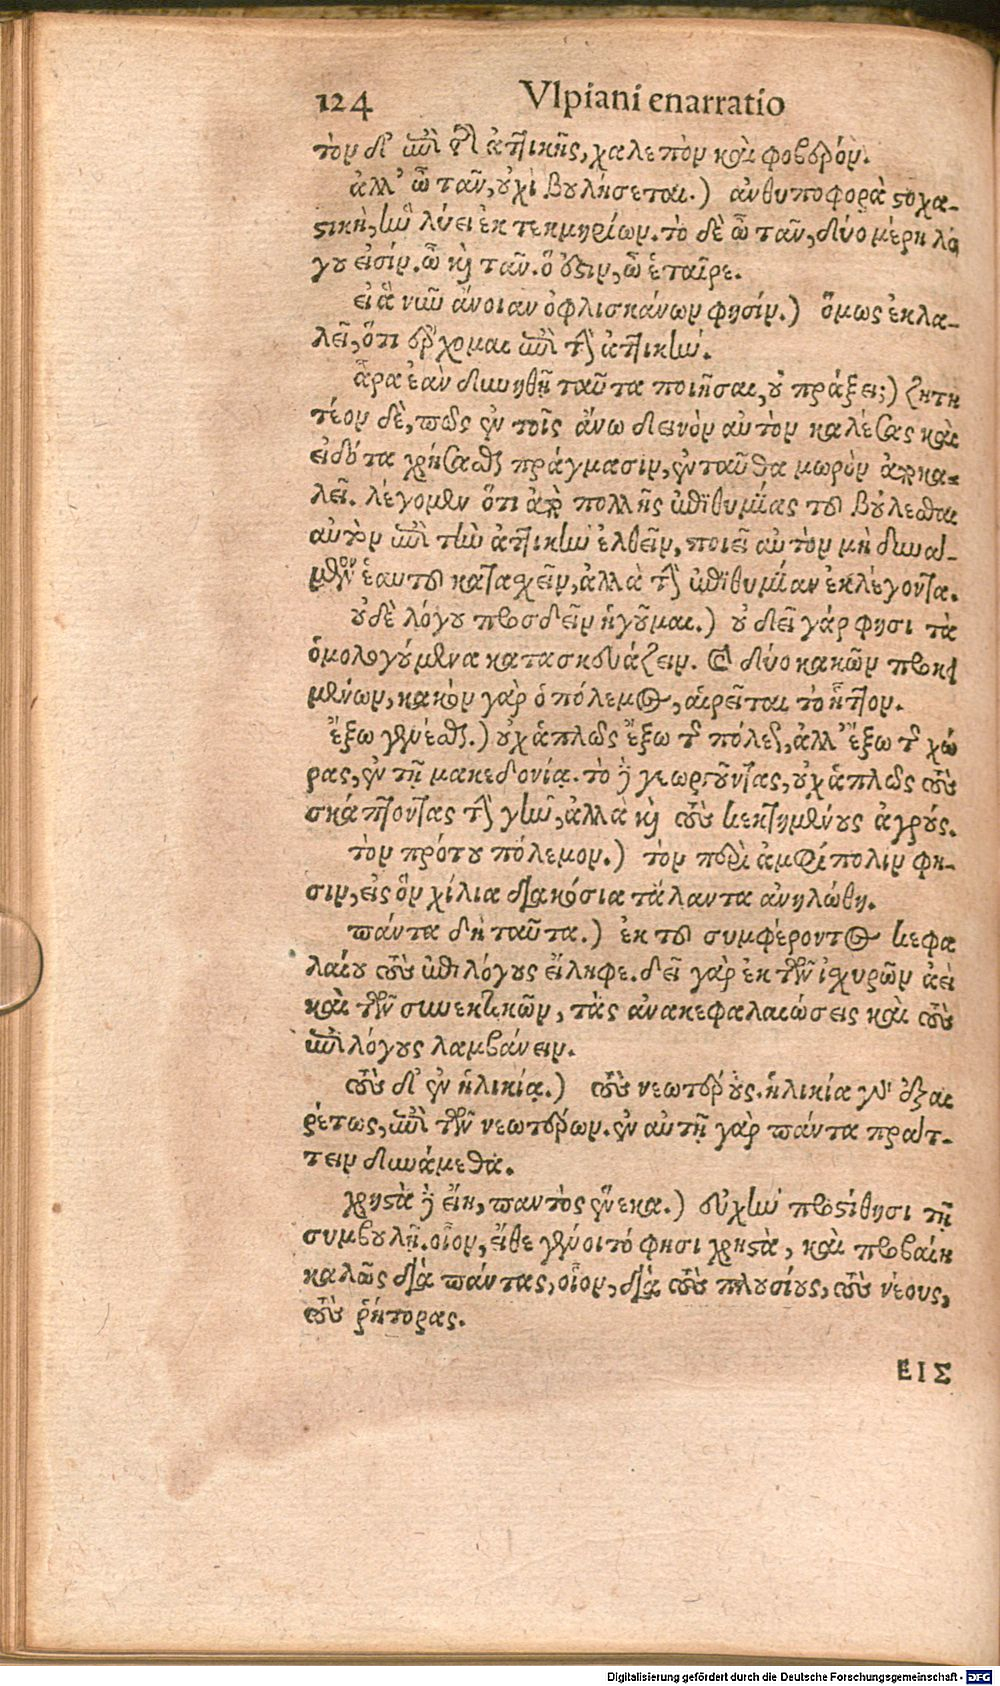 124 Vlpiani enarratio
τὸν δ' ἐπὶ τῆς ἀττικῆς, χαλεπὸν καὶ φοβερόν.
ἀλλ' ὦ τᾶν, οὐχὶ βουλήσεται.) ἀνθυποφορὰ στοχα-
στικὴ, ἣν λύει ἐκ τεκμηρίων. τὸ δὲ ὦ τᾶν, δύο μέρη λό
γου εἰσίν. ὦ καὶ τᾶν. ὅ ἐστιν, ὦ ἑταῖρε.
εἰ ἃ νῦν ἄνοιαν ὀφλισκάνων φησίν.) ὅμως ἐκλα-
λεῖ, ὅτι ἔρχομαι ἐπὶ τὴν ἀττικήν.
ἆρα ἐὰν δυνηθῇ ταῦτα ποιῆσαι, οὐ πράξει;) ζητη
τέον δὲ, πῶς ἐν τοῖς ἄνω δεινὸν αὐτὸν καλέσας καὶ
εἰδότα χρήσασθαι πράγμασιν, ἐνταῦθα μωρὸν ἀποκα-
λεῖ. λέγομεν ὅτι ἀπὸ πολλῆς ἐπιθυμίας τοῦ βούλεσθαι
αὐτὸν ἐπὶ τὴν ἀττικὴν ἐλθεῖν, ποιεῖ αὐτὸν μὴ δυνά-
μενον ἑαυτοῦ κατασχεῖν, ἀλλὰ τὴν ἐπιθυμίαν ἐκλέγοντα.
οὐδὲ λόγου προσδεῖν ἡγοῦμαι.) οὐ δεῖ γάρ φησι τὰ
ὁμολογούμενα κατασκευάζειν. καὶ δύο κακῶν προκει
μένων, κακὸν γὰρ ὁ πόλεμος, αἱρεῖται τὸ ἧττον.
ἔξω γενέσθαι.) οὐχ ἁπλῶς ἔξω τῆς πόλεως, ἀλλ' ἔξω τῆς χώ
ρας, ἐν τῇ μακεδονίᾳ. τὸ δὲ γεωργοῦντας, οὐχ ἁπλῶς τοὺς
σκάπτοντας τὴν γῆν, ἀλλὰ καὶ τοὺς κεκτημένους ἀγρούς.
τὸν πρότου πόλεμον.) τὸν περὶ ἀμφίπολιν φη-
σιν, εἰς ὃν χίλια διακόσια τάλαντα ἀνηλώθη.
πάντα δὴ ταῦτα.) ἐκ τοῦ συμφέροντος κεφα
λαίου τοὺς ἐπιλόγους εἴληφε. δεῖ γὰρ ἐκ τῶν ἰσχυρῶν ἀεὶ
καὶ τῶν συνεκτικῶν, τὰς ἀνακεφαλαιώσεις καὶ τοὺς
ἐπιλόγους λαμβάνειν.
τοὺς δ' ἐν ἡλικίᾳ.) τοὺς νεωτέρους. ἡλικία γὰρ ἐξαι
ρέτως, ἐπὶ τῶν νεωτέρων. ἐν αὐτῇ γὰρ πάντα πράτ-
τειν δυνάμεθα.
χρηστὰ δὲ εἴη, παντὸς ἕνεκα.) εὐχὴν προστίθησι τῇ
συμβουλῇ. οἷον, εἴθε γένοιτό φησι χρηστὰ, καὶ προβαίη
καλῶς διὰ πάντας, οἷον, διὰ τοὺς πλουσίους, τοὺς νέους,
τοὺς ῥήτορας.
ΕΙΣ
Digitalisierung gefördert durch die Deutsche Forschungsgemeinschaft - DFG